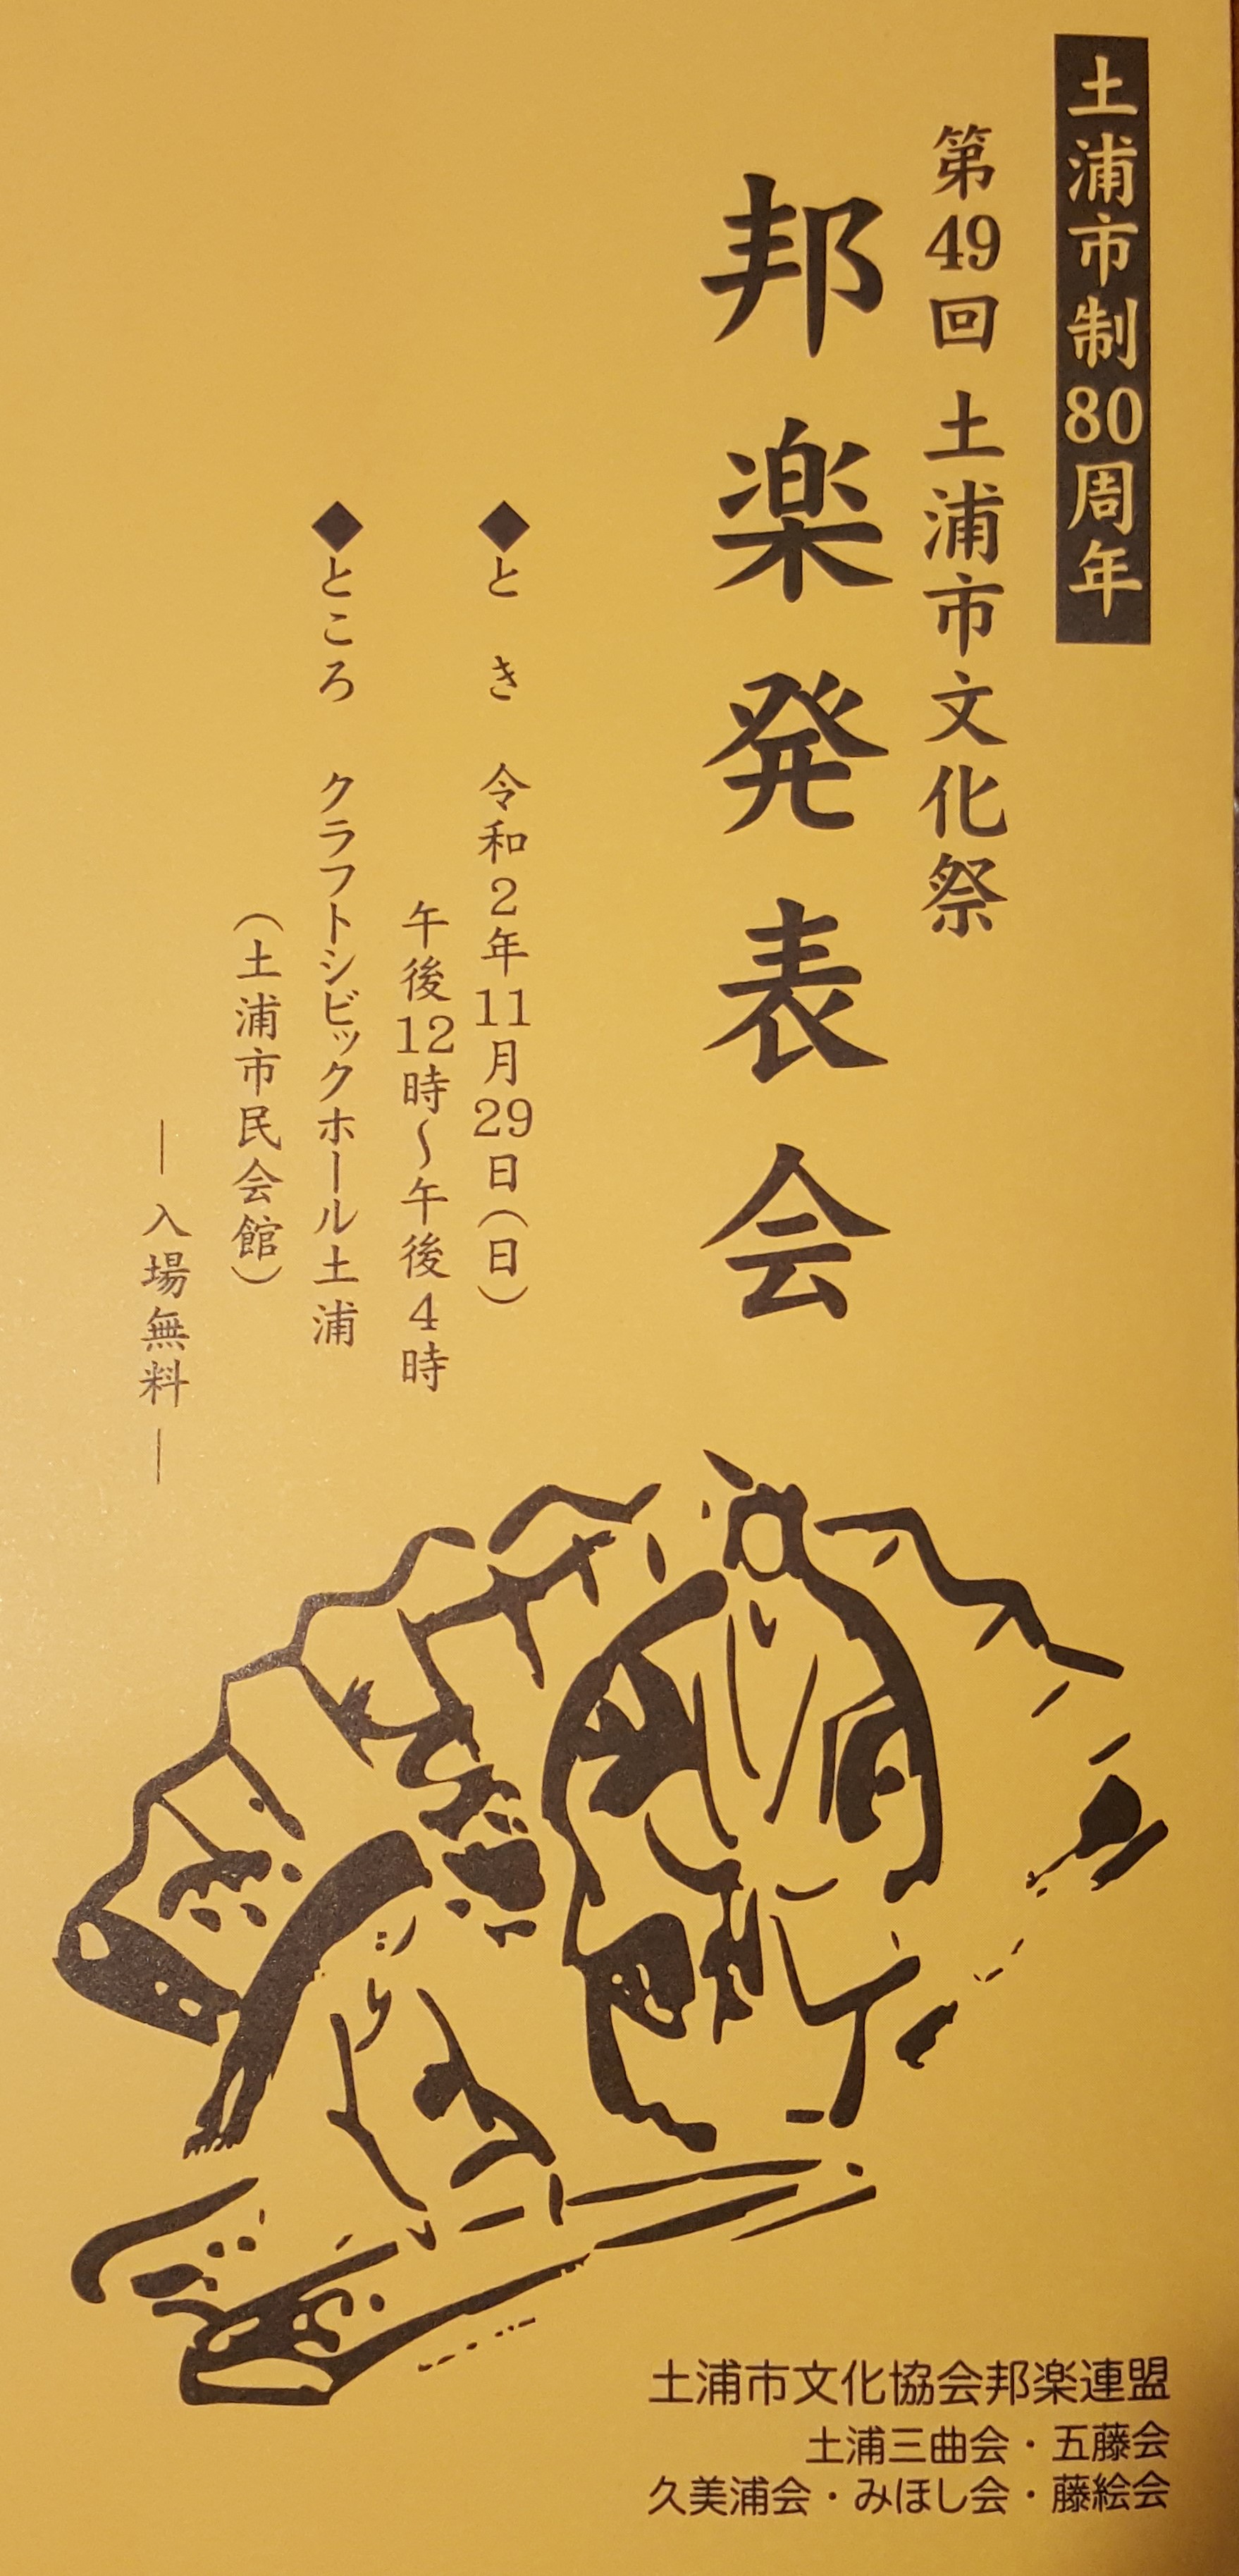 土浦市制80周年
第49回 土浦市文化祭
邦楽発表会
◆と き 令和2年11月29日(日)
午後12時～午後4時
◆ところ クラフトシビックホール土浦
(土浦市民会館)
― 入場無料 ―
土浦市文化協会邦楽連盟
土浦三曲会・五藤会
久美浦会・みほし会・藤絵会